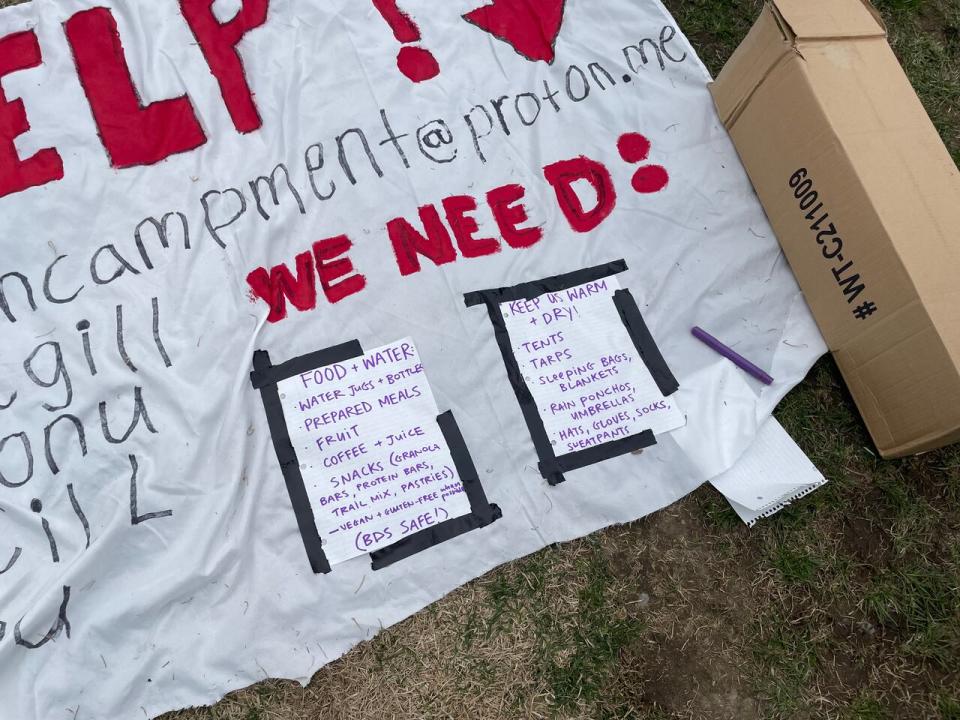 ELP!
ncampment@proton.me
gill
onu
cil L
WE NEED:
FOOD + WATER:
· WATER JUGS + BOTTLES
· PREPARED MEALS
· FRUIT
· COFFEE + JUICE
· SNACKS (GRANOLA
BARS, PROTEIN BARS,
TRAIL MIX, PASTRIES)
- VEGAN + GLUTEN-FREE when possible
(BDS SAFE!)
KEEP US WARM
+ DRY!
· TENTS
· TARPS
· SLEEPING BAGS,
BLANKETS
· RAIN PONCHOS
UMBRELLAS
· HATS, GLOVES, SOCKS,
SWEATPANTS
#WT-C211009